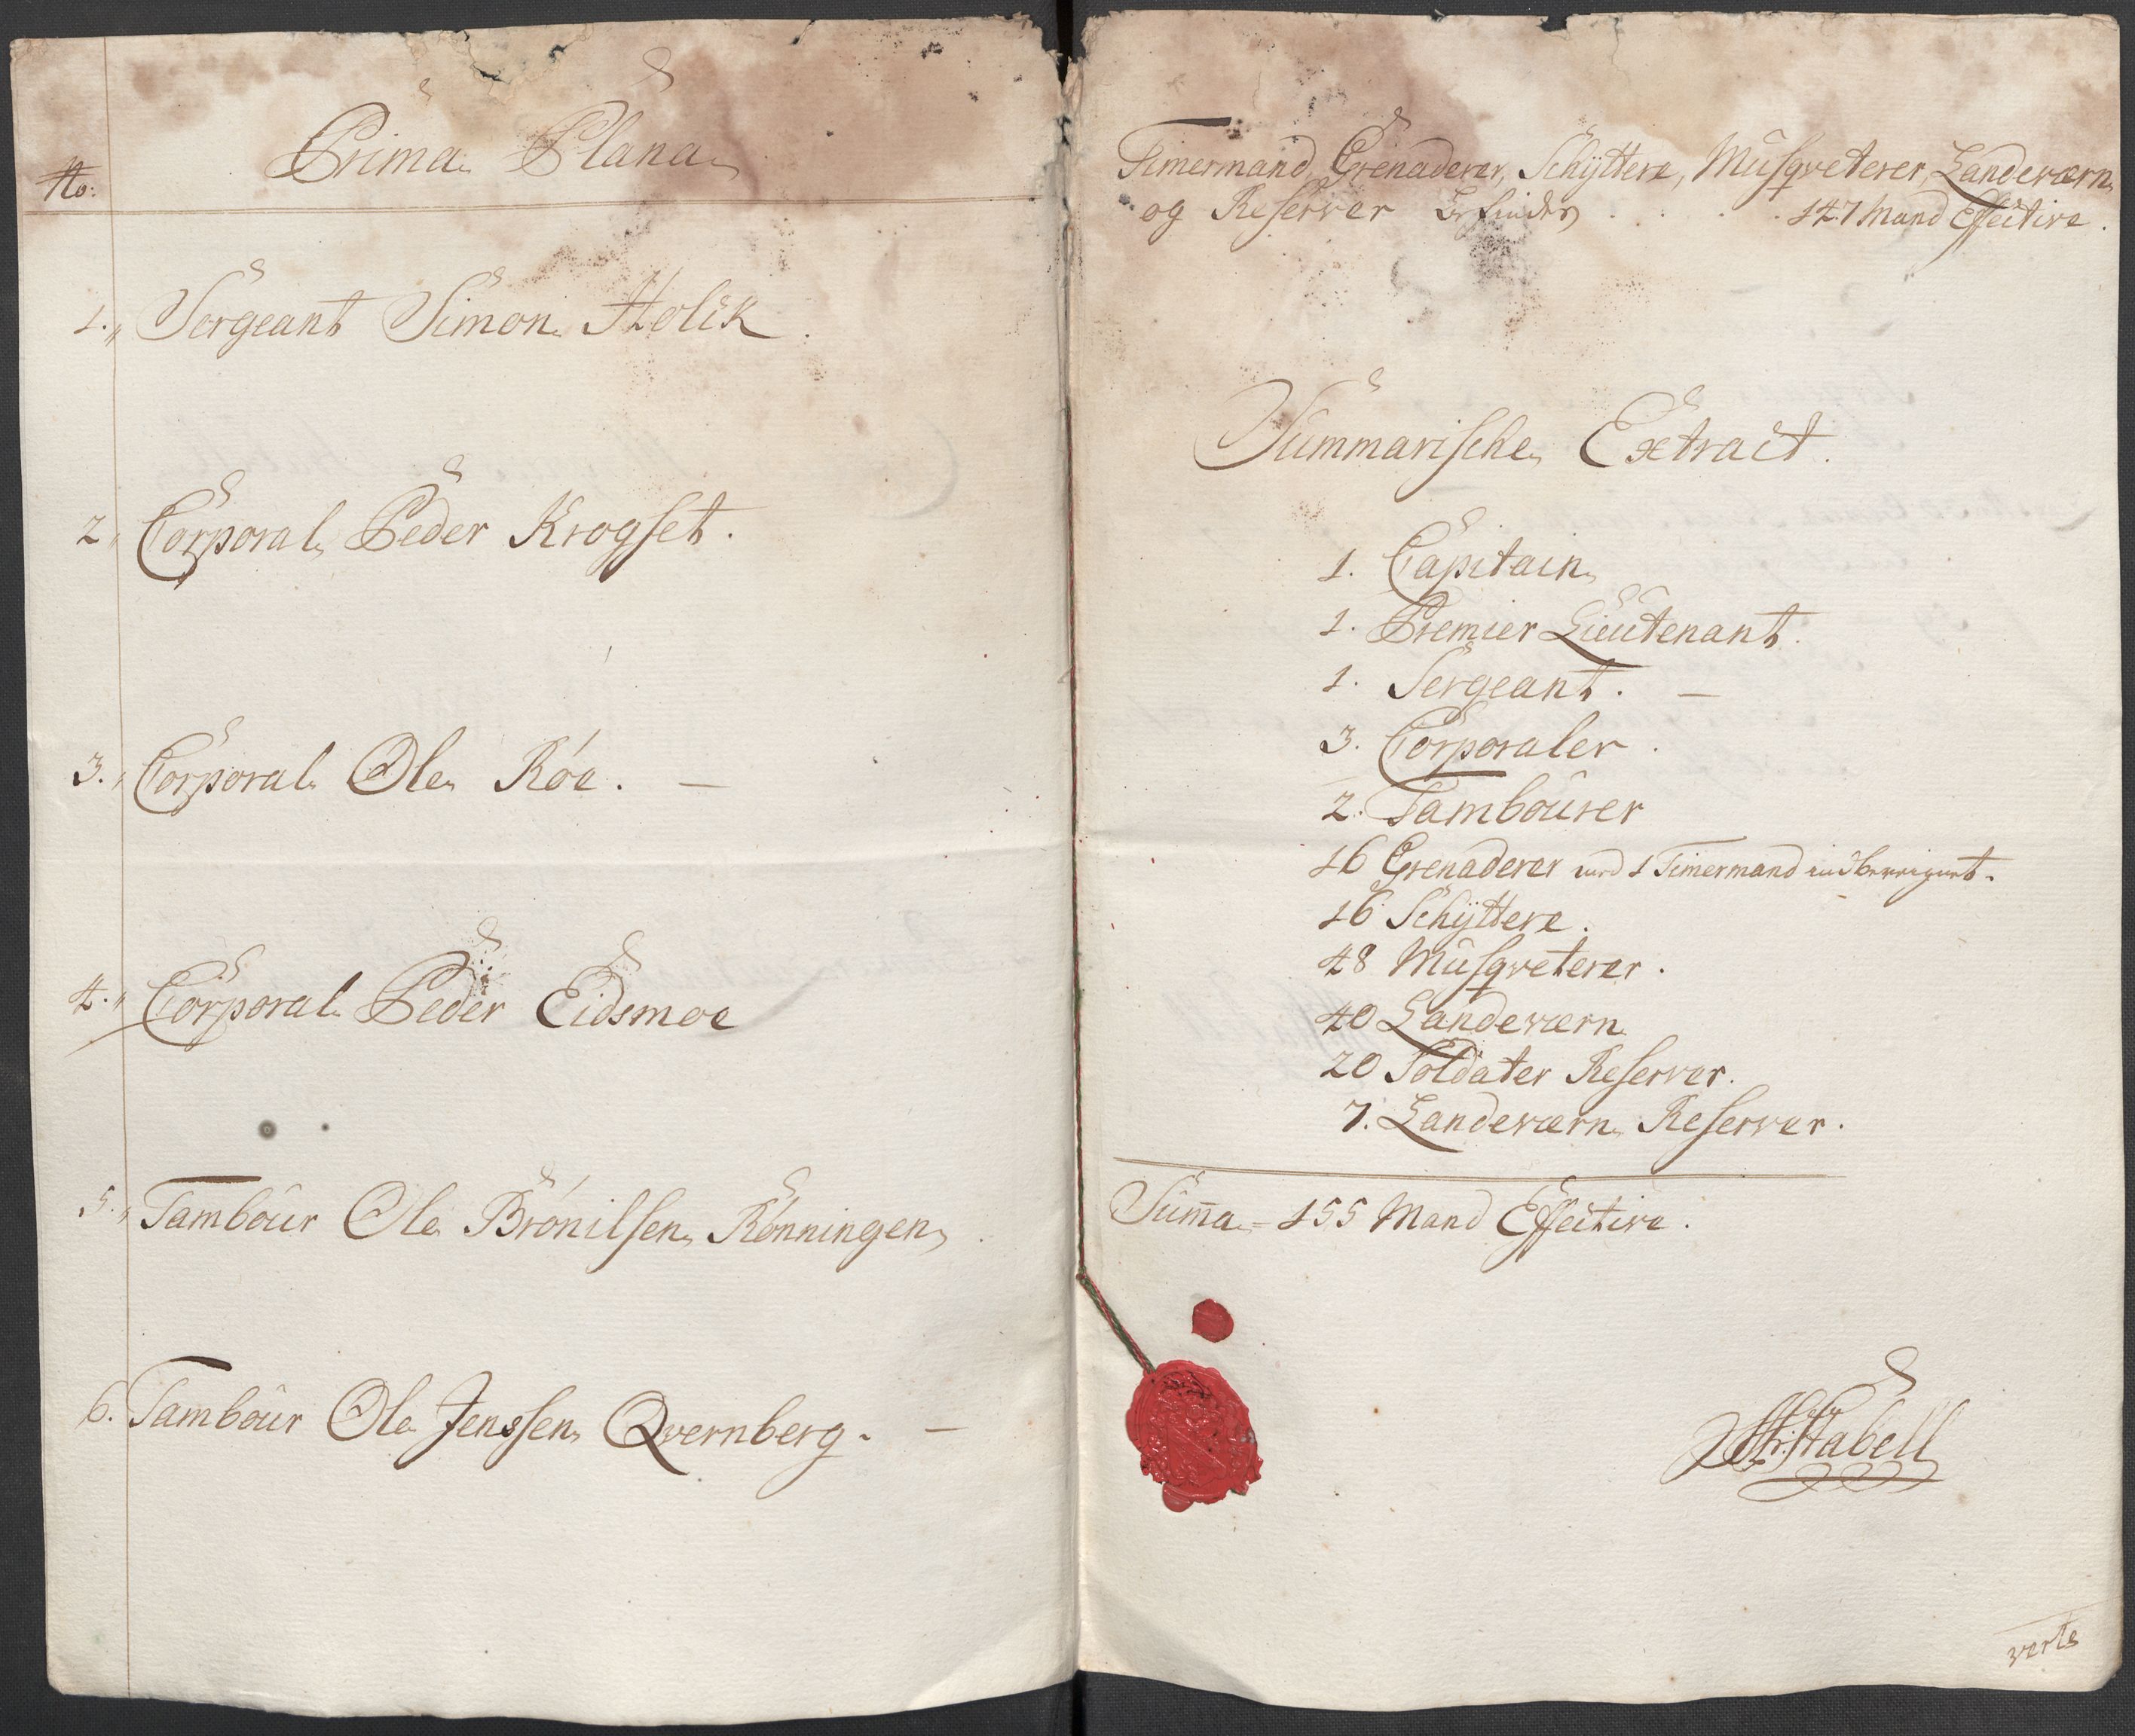 No: Prima Plana
1. Sergeant Simon Holck
2. Corporal Peder Krogset.
3. Corporal Ole Róe. —
4. Corporal Peder Eidsmoe
5. Tambour Ole Brónilsen Rónningen
6. Tambour Ole Jenssen Qvernberg. —
Timermand, Grenaderer, Schÿttere, Musqveterer, Landeværn
og Reserver befindes . . . . 147 Mand Effective.
Summarische Extract.
1. Capitain
1. Premier Lieutenant.
1. Sergeant. —
3. Corporaler.
2. Tambourer
16 Grenaderer med 1 Timermand indbereignet.
16 Schÿttere.
48 Musqveterer.
40 Landeværn
20 Soldater Reserver.
7. Landeværn Reserver.
Sum̄a = 155 Mand Effective.
Stabell
verte